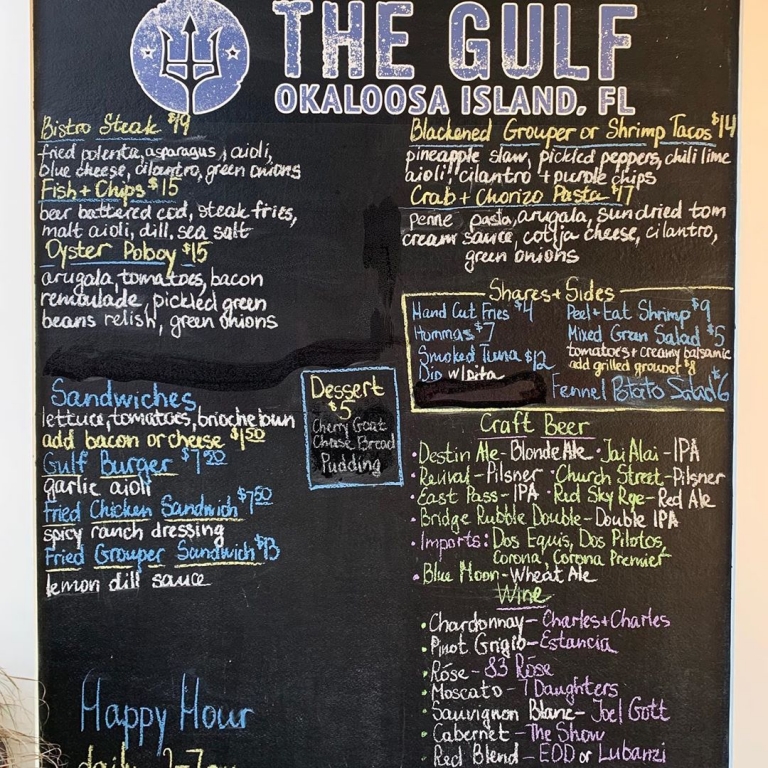 THE GULF
OKALOOSA ISLAND, FL
Bistro Steak $19
fried polenta, asparagus, aioli,
blue cheese, cilantro, green onions
Fish + Chips $15
bear battered cod, steak fries,
malt aioli, dill, sea salt
Oyster Poboy $15
arugala, tomatoes, bacon
remoulade, pickled green
beans relish, green onions
Sandwiches
lettuce, tomatoes, brioche bun
add bacon or cheese $1.50
Gulf Burger $7.50
garlic aioli
Fried Chicken Sandwich $7.50
spicy ranch dressing
Fried Grouper Sandwich $13
lemon dill sauce
Happy Hour
daily
Dessert
$5
Cherry Goat
Cheese Bread
Pudding
Blackened Grouper or Shrimp Tacos $14
pineapple slaw, pickled peppers, chili lime
aioli, cilantro + purple chips
Crab + Chorizo Pasta $17
penne pasta, arugala, sundried tom
cream sauce, cotija cheese, cilantro,
green onions
Shares + Sides
Hand Cut Fries $4
Hummas $7
Smoked Tuna $12
Dip w/pita
Peel + Eat Shrimp $9
Mixed Green Salad $5
tomatoes + creamy balsamic
add grilled grouper $8
Fennel Potato Salad $6
Craft Beer
• Destin Ale - Blonde Ale • Jai Alai - IPA
• Revival - Pilsner • Church Street - Pilsner
• East Pass - IPA • Red Sky Rye - Red Ale
• Bridge Rubble Double - Double IPA
• Imports: Dos Equis, Dos Pilotos,
Corona, Corona Premier
• Blue Moon - Wheat Ale
Wine
• Chardonnay - Charles + Charles
• Pinot Grigio - Estancia
• Róse - 83 Róse
• Moscato - 7 Daughters
• Sauvignon Blanc - Joel Gott
• Cabernet - The Show
• Red Blend - EOD or Lubanzi